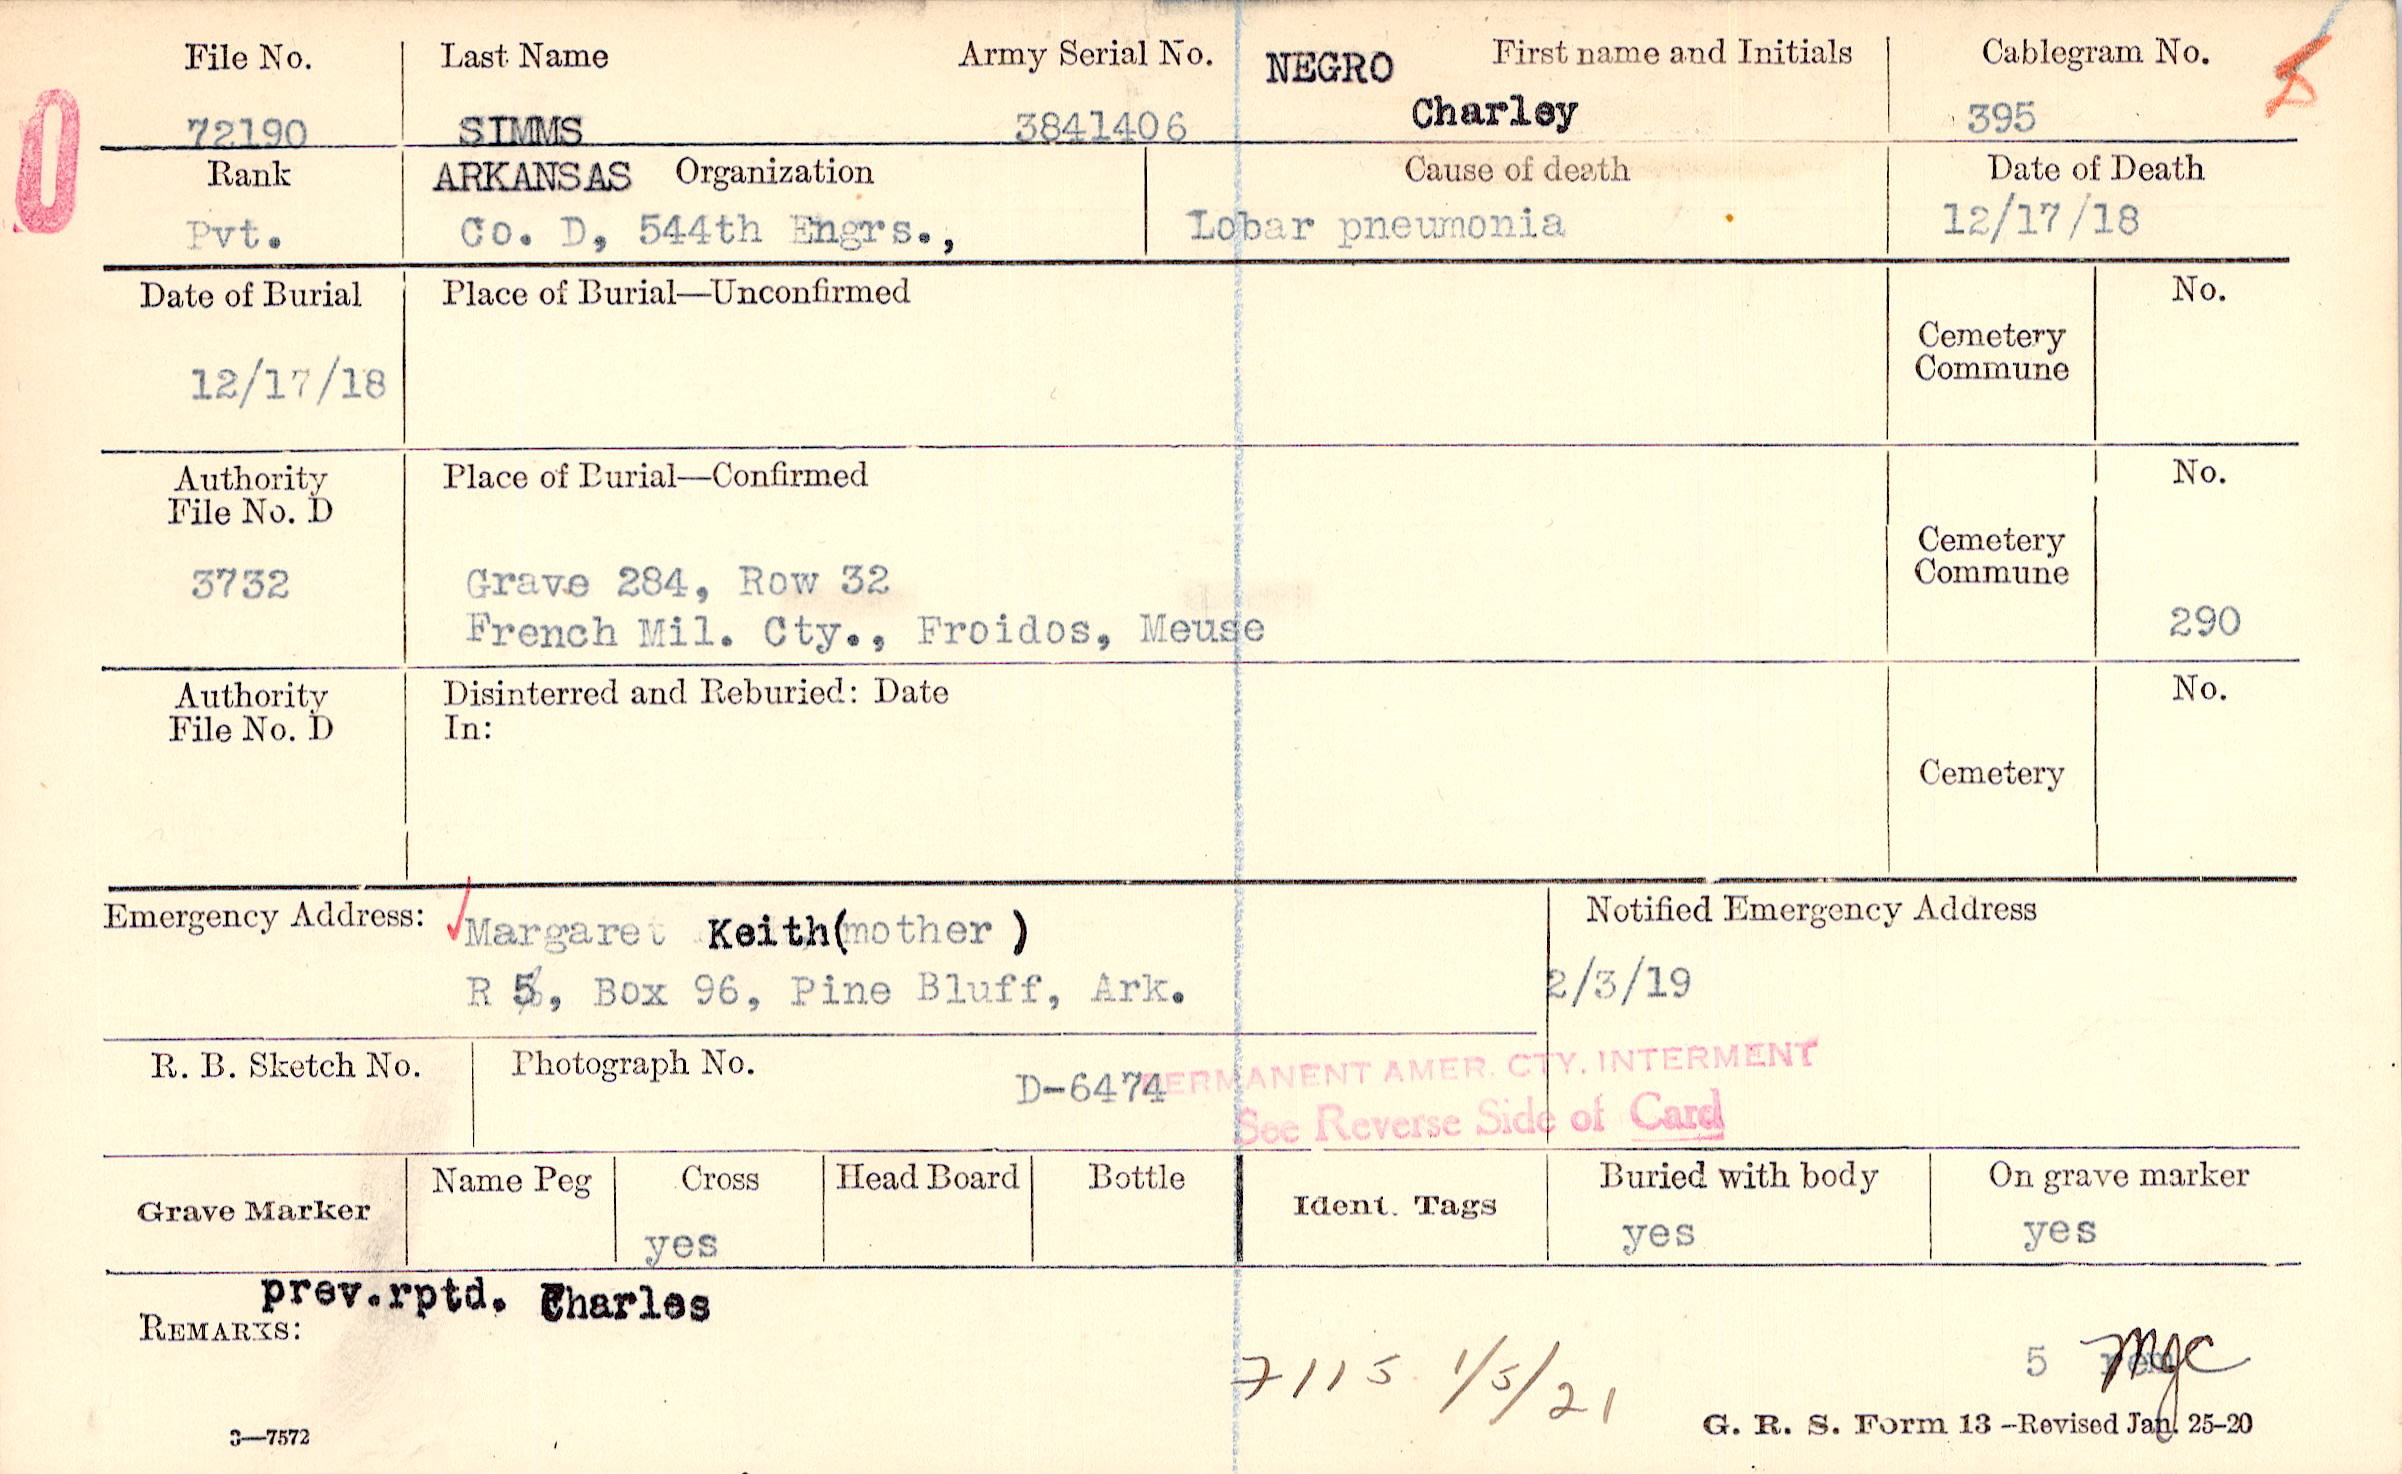 File No. Last Name Army Serial No. NEGRO First name and Initials Cablegram No.
72190 SIMMS 3841406 Charley 395
Rank ARKANSAS Organization Cause of death Date of Death
Pvt. Co. D, 544th Engrs., Lobar pneumonia 12/17/18
Date of Burial Place of Burial—Unconfirmed No.
Cemetery
Commune
12/17/18
Authority Place of Burial—Confirmed No.
File No. D
Cemetery
Commune
3732 Grave 284, Row 32
French Mil. Cty., Froidos, Meuse 290
Authority Disinterred and Reburied: Date No.
File No. D In:
Cemetery
Emergency Address: Margaret Keith(mother ) Notified Emergency Address
R 5, Box 96, Pine Bluff, Ark. 2/3/19
R. B. Sketch No. Photograph No.
D-6474 PERMANENT AMER. CTY. INTERMENT
See Reverse Side of Card
Grave Marker Name Peg Cross Head Board Bottle Ident. Tags Buried with body On grave marker
yes yes yes
prev.rptd. Charles
REMARKS:
7115 1/5/21 5
3—7572 G. R. S. Form 13 -Revised Jan. 25-20